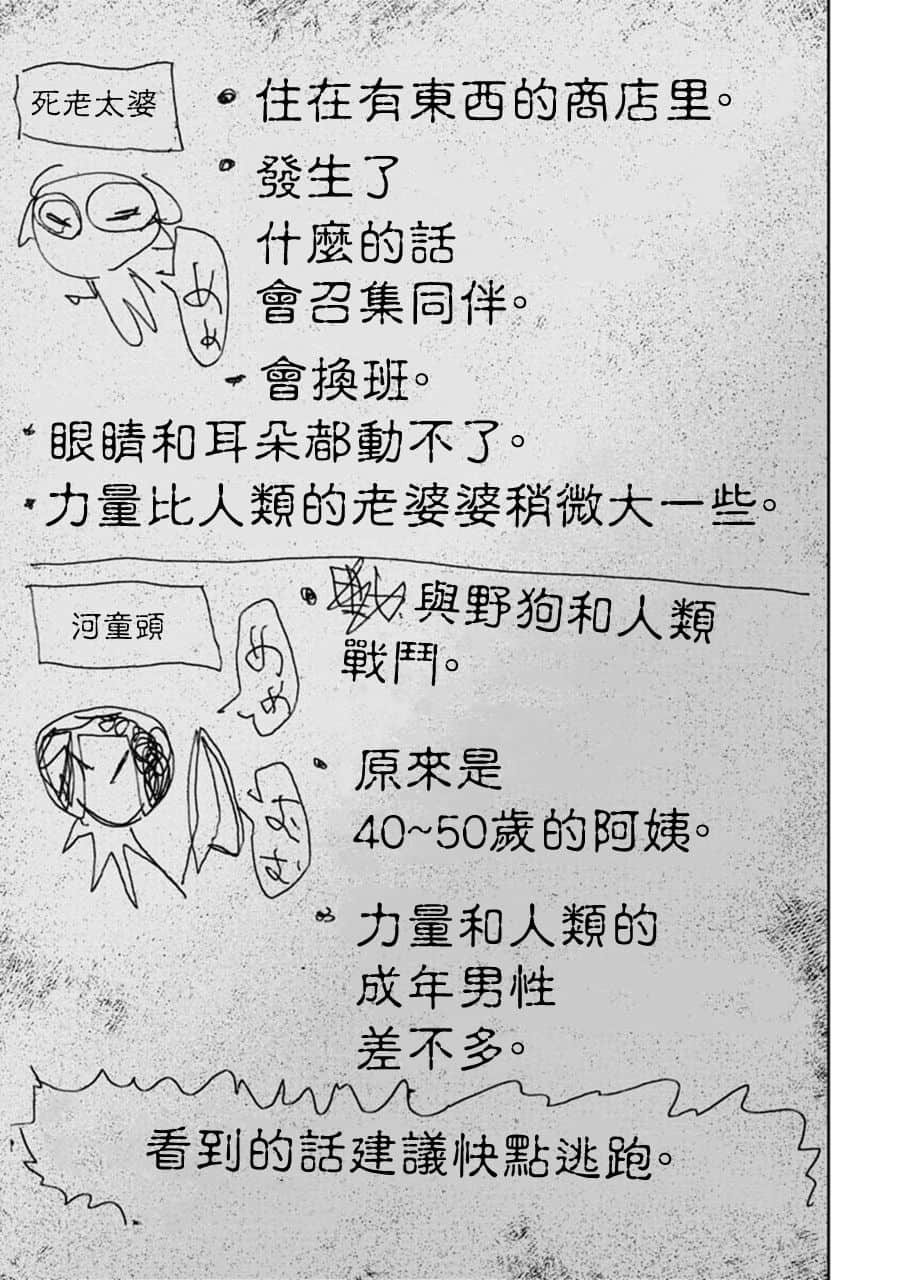 死老太婆
住在有東西的商店里。
發生了
什麼的話
會召集同伴。
めぇ
會換班。
眼睛和耳朵都動不了。
力量比人類的老婆婆稍微大一些。
河童頭
與野狗和人類
戰鬥。
めめ
原來是
40~50歲的阿姨。
むむ
力量和人類的
成年男性
差不多。
看到的話建議快點逃跑。